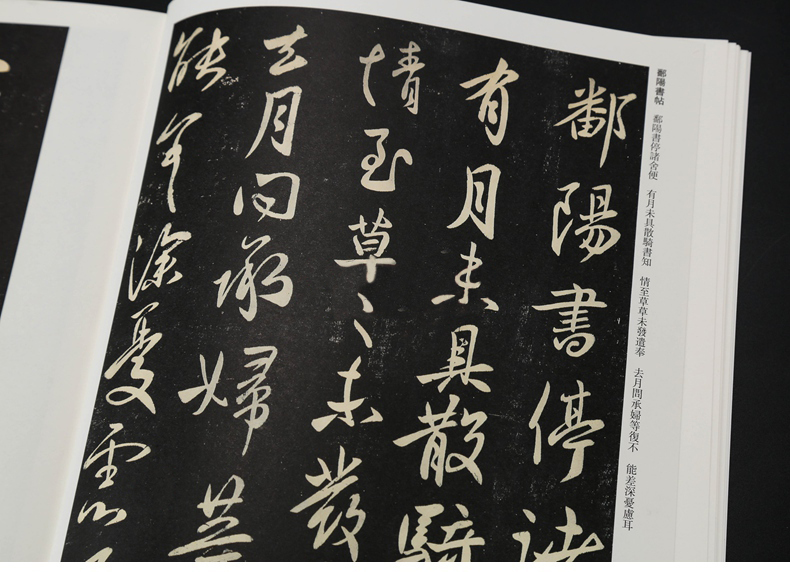 鄱陽書帖 鄱陽書停諸舍便 有月未具散騎書知 情至草草未發遣奉 去月問承婦等復不 能差深憂慮耳
鄱陽書停諸
有月未具散騎
情至草〻未發
去月問承婦等
能差深憂慮